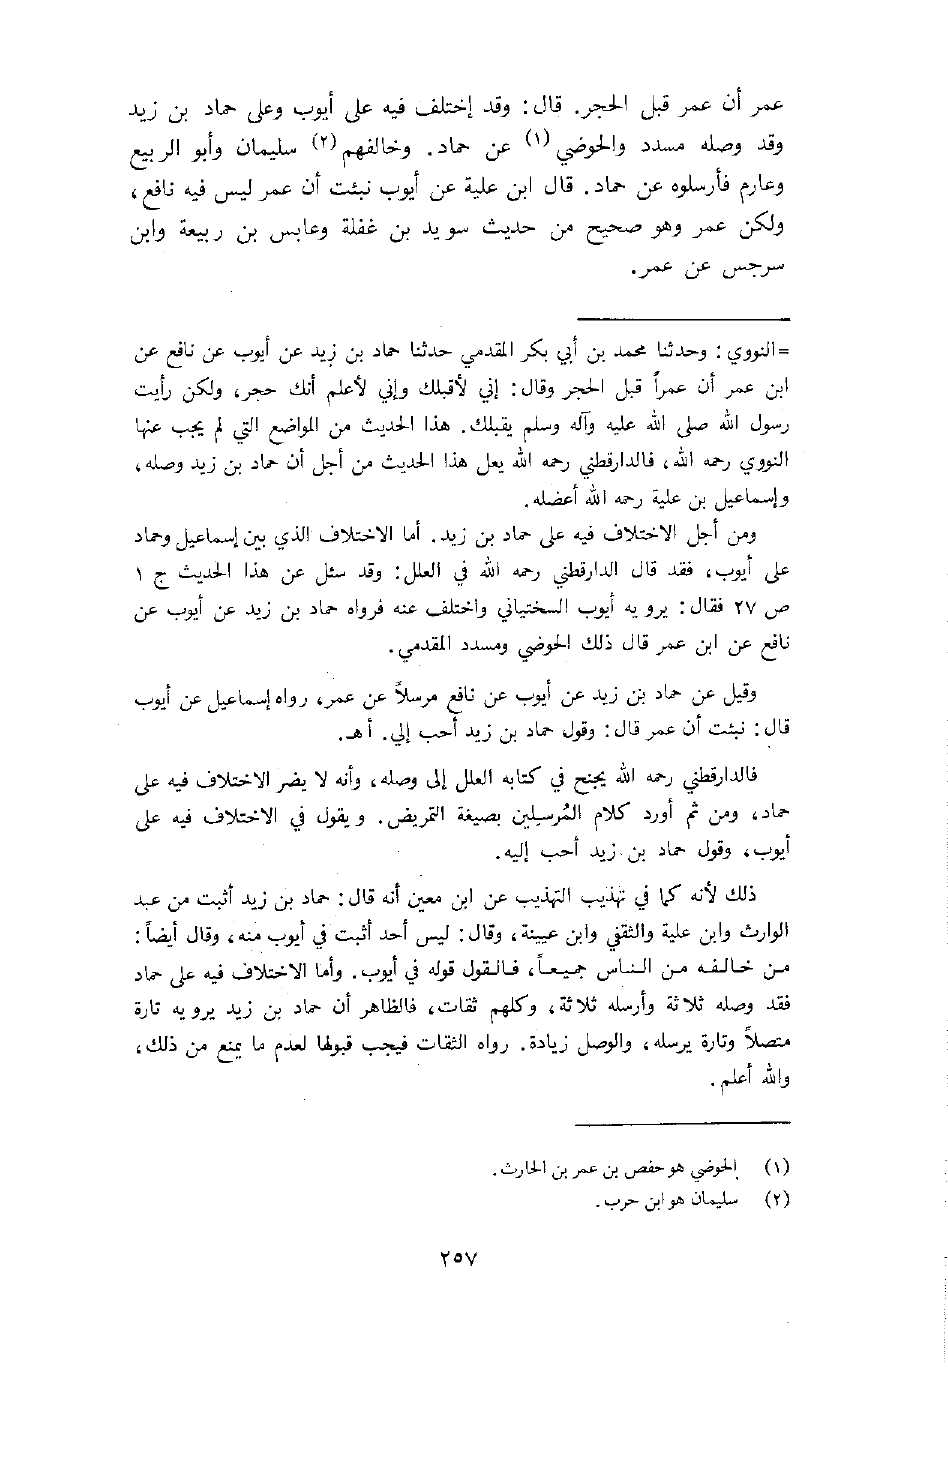 عمر أن عمر قبل الحجر. قال: وقد إختلف فيه على أيوب وعلى حماد بن زيد
وقد وصله مسدد والحوضي (١) عن حماد. وخالفهم (٢) سليمان وأبو الربيع
وعارم فأرسلوه عن حماد. قال ابن علية عن أيوب نبئت أن عمر ليس فيه نافع،
ولكن عمر وهو صحيح من حديث سويد بن غفلة وعابس بن ربيعة وابن
سرجس عن عمر.
=النووي: وحدثنا محمد بن أبي بكر المقدمي حدثنا حماد بن زيد عن أيوب عن نافع عن
ابن عمر أن عمراً قبل الحجر وقال: إني لأقبلك وإني لأعلم أنك حجر، ولكن رأيت
رسول الله صلى الله عليه وآله وسلم يقبلك. هذا الحديث من المواضع التي لم يجب عنها
النووي رحمه الله، فالدارقطني رحمه الله يعل هذا الحديث من أجل أن حماد بن زيد وصله،
وإسماعيل بن علية رحمه الله أعضله.
ومن أجل الاختلاف فيه على حماد بن زيد. أما الاختلاف الذي بين إسماعيل وحماد
على أيوب، فقد قال الدارقطني رحمه الله في العلل: وقد سئل عن هذا الحديث ج ١
ص ٢٧ فقال: يرويه أيوب السختياني واختلف عنه فرواه حماد بن زيد عن أيوب عن
نافع عن ابن عمر قال ذلك الحوضي ومسدد المقدمي.
وقيل عن حماد بن زيد عن أيوب عن نافع مرسلاً عن عمر، رواه إسماعيل عن أيوب
قال: نبئت أن عمر قال: وقول حماد بن زيد أحب إلي. أهـ.
فالدارقطني رحمه الله يجنح في كتابه العلل إلى وصله، وأنه لا يضر الاختلاف فيه على
حماد، ومن ثم أورد كلام المُرسِلين بصيغة التمريض. ويقول في الاختلاف فيه على
أيوب، وقول حماد بن زيد أحب إليه.
ذلك لأنه كما في تهذيب التهذيب عن ابن معين أنه قال: حماد بن زيد أثبت من عبد
الوارث وابن علية والثقفي وابن عيينة، وقال: ليس أحد أثبت في أيوب منه، وقال أيضاً:
من خالفه من الناس جميعاً، فالقول قوله في أيوب. وأما الاختلاف فيه على حماد
فقد وصله ثلاثة وأرسله ثلاثة، وكلهم ثقات، فالظاهر أن حماد بن زيد يرويه تارة
متصلاً وتارة يرسله، والوصل زيادة. رواه الثقات فيجب قبولها لعدم ما يمنع من ذلك،
والله أعلم.
(١) الحوضي هو حفص بن عمر بن الحارث.
(٢) سليمان هو ابن حرب.
٢٥٧